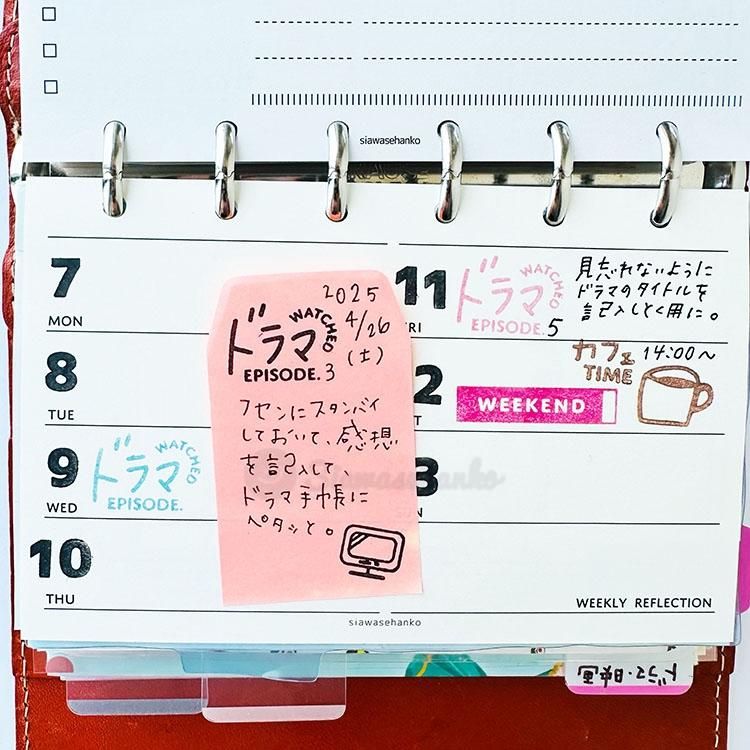 siawasehanko
7
MON
8
TUE
9
WED
ドラマ
WATCHED
EPISODE.
10
THU
2025
4/26
(土)
ドラマ
WATCHED
EPISODE.3
フセンにスタンバイ
しておいて、感想
を記入して、
ドラマ手帳に
ペタッと。
11
RI
ドラマ
WATCHED
EPISODE.5
見忘れないように
ドラマのタイトルを
記入しとく用に。
2
T
WEEKEND
カフェ 14:00〜
TIME
3
WEEKLY REFLECTION
siawasehanko
Siawasehanko
ドラマ・映画